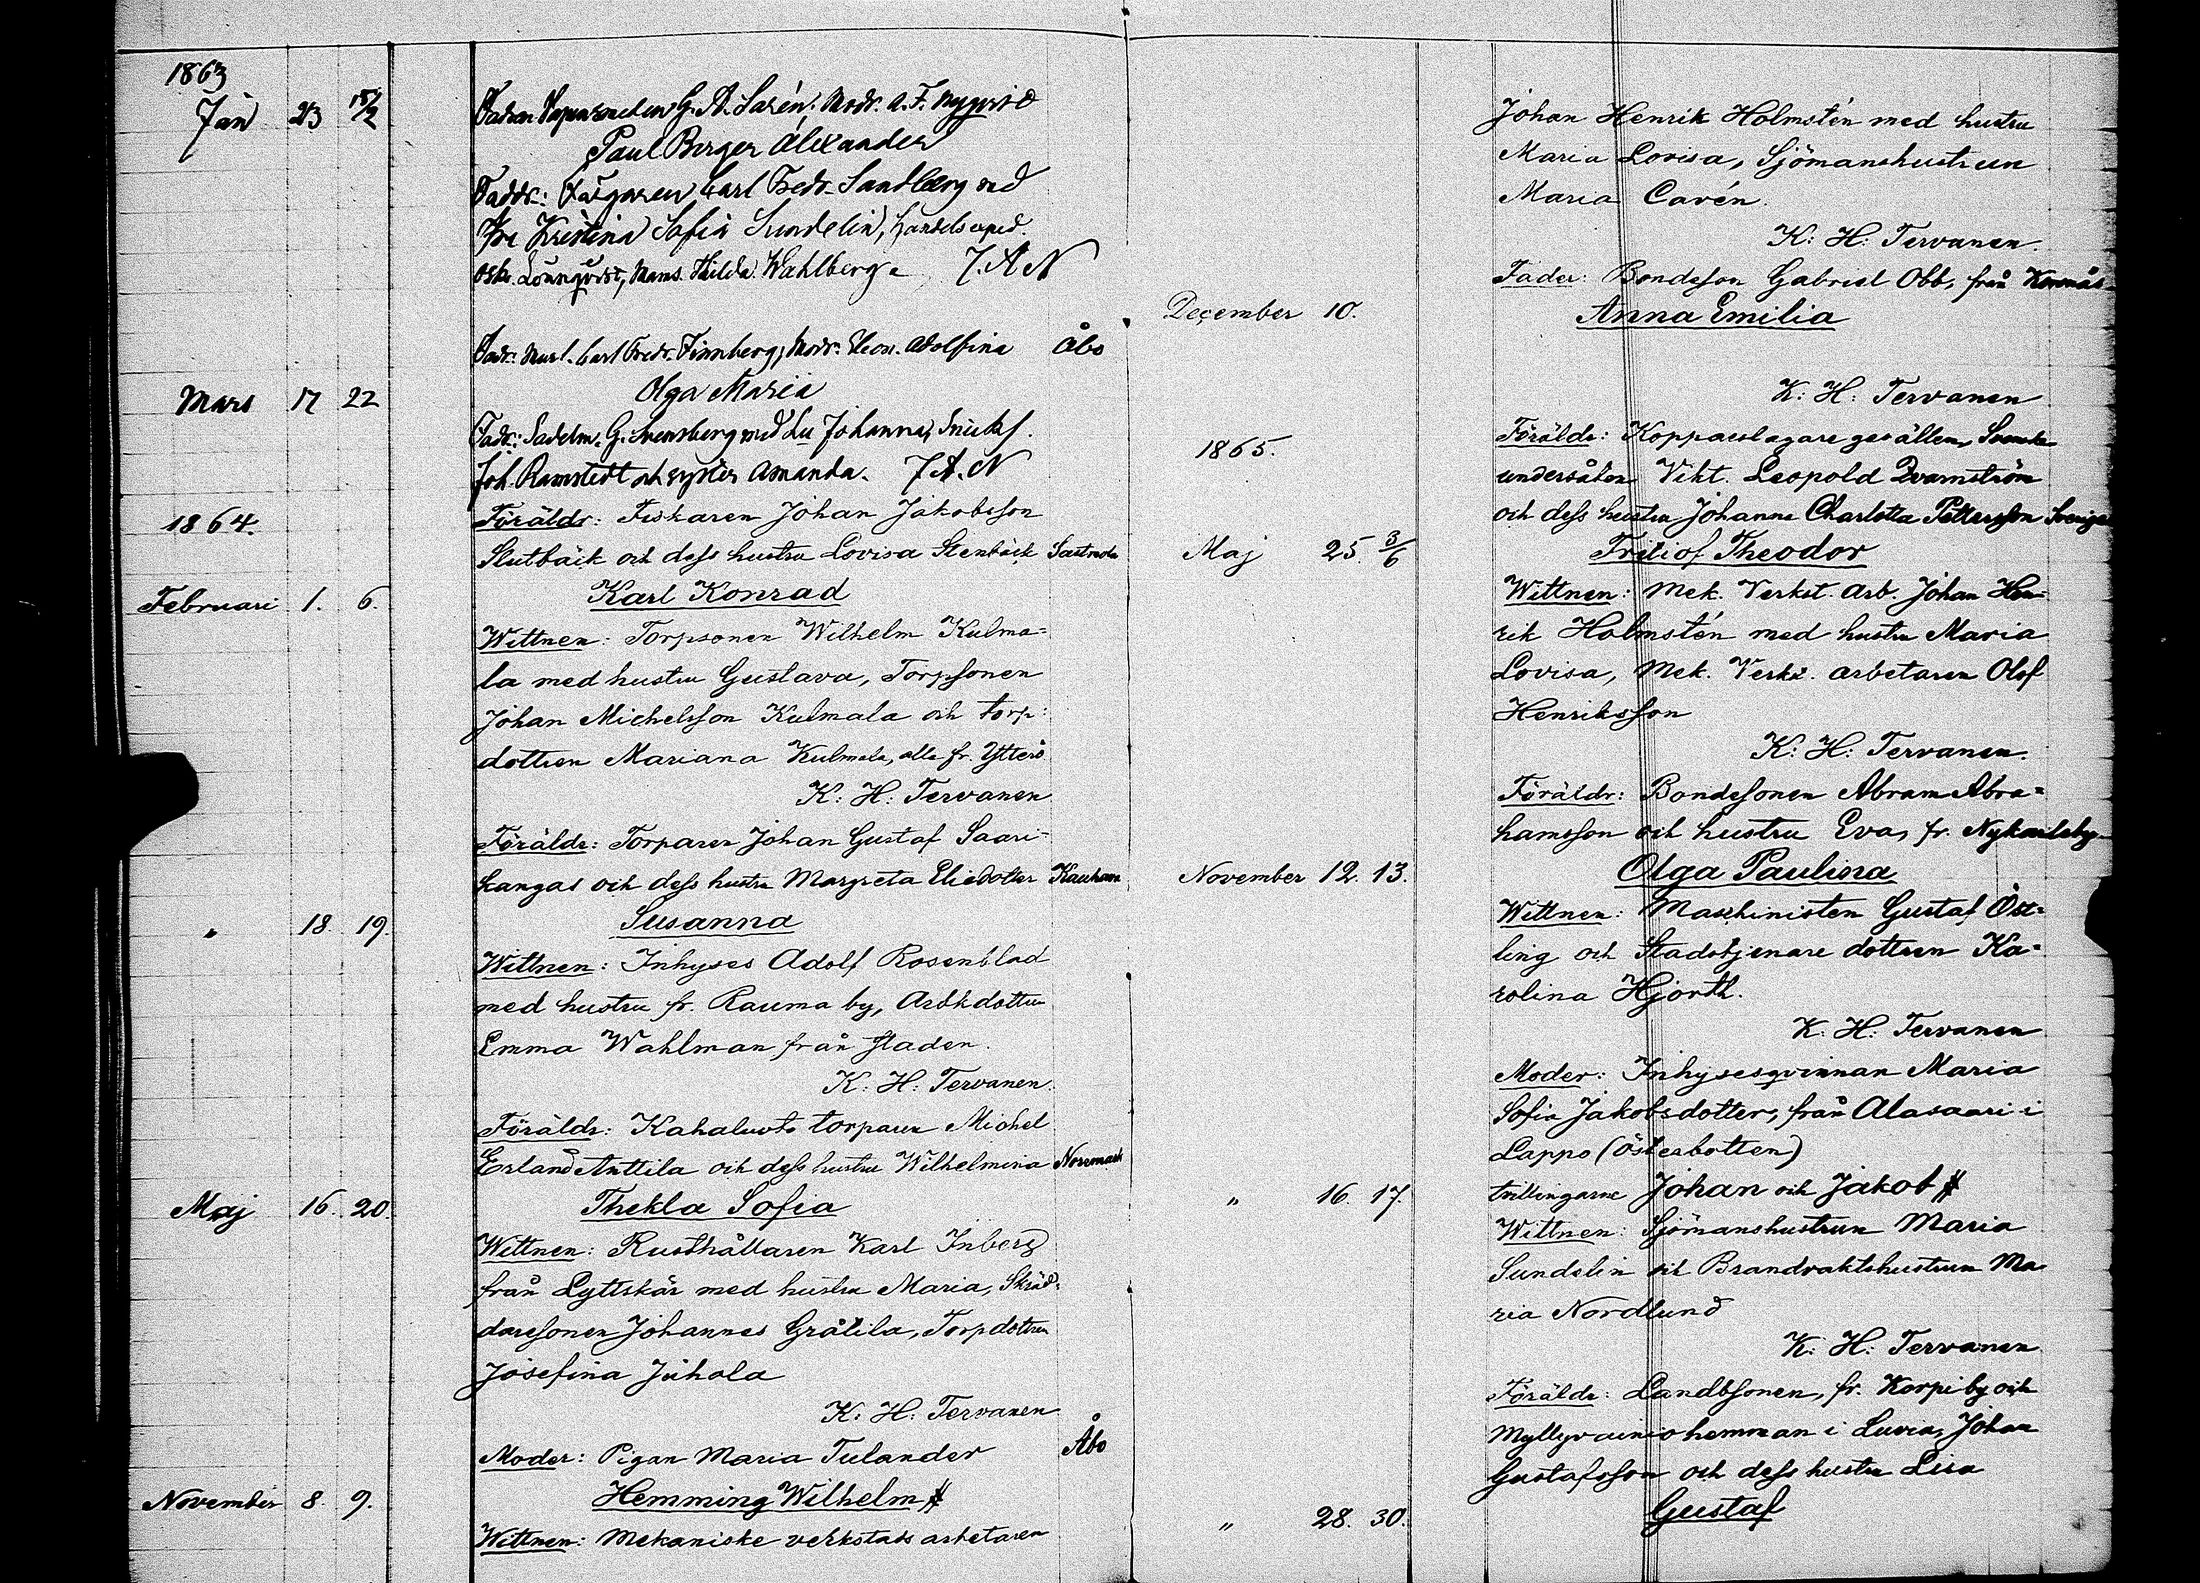 1863
Jan 23 15/2 Fadren G. A. Sarén, Modr. A. F. Nyqvist
Paul Birger Alexander
Faddr: Färgaren Carl Fredr. Sandberg med
Fru Kristina Sofia Sundelin, handelsexped.
Osk. Lönnqvist, Mams. Hilda Wahlberg. J. A. N
Fadr. Murl. Carl Fredr. Finnberg; Modr. Adolfina Åbo
Mars 17 22 Olga Maria
Fadr.: Sadelm. G. Svensberg med Johanna, Snick.
Joh. Ramstedt och syster Amanda. J. A. N
1864. Föräldr: Fiskaren Johan Jakobsson
Slutbäck och dess hustru Lovisa Stenbäck Sastmola
Februari 1. 6. Karl Konrad
Wittnen: Torpsonen Wilhelm Kulma=
la med hustru Gustava, Torpsonen
Johan Michelsson Kulmala och torp:
dottren Mariana Kulmala, alla fr. Ytterö
K: H: Tervanen
Föräldr: Torparen Johan Gustaf Saari=
kangas och dess hustru Margreta Eliedotter Kauham
" 18 19. Susanna
Wittnen: Inhyses Adolf Rosenblad
med hustru fr. Rauma by, Arbkdottren
Emma Wahlman från staden.
K: H: Tervanen.
Föräldr: torparen Michel
Erland Anttila och dess hustru Wilhelmina Norrmark
Maj 16. 20. Thekla Sofia
Wittnen: Rusthållaren Karl Inberg
från Lyttskär med hustru Maria, Skräd=
daresonen Johannes Gråtila, Torpdottren
Josefina Juhola
K: H: Tervanen
Moder: Pigan Maria Tulander Åbo
November 8. 9. Hemming Wilhelm #
Wittnen: Mekaniske verkstads arbetaren
Johan Henrik Holmstén med hustru
Maria Lovisa, Sjömanshustrun
Maria Cavén.
K: H: Tervanen.
Fader: Bondeson Gabriel Obb, från Korsnäs
December 10. Anna Emilia
K: H: Tervanen
1865. Föräldr: Kopparslagare gesällen, Svenske
undersåten Vikt. Leopold Qvarnström
och dess hustru Johanna Charlotta Pettersson Sverige
Maj 25. 3/6 Fritiof Theodor
Wittnen: Mek. Verkst. Arb. Johan Hen=
rik Holmstén med hustru Maria
Lovisa, Mek. Verkst. arbetaren Olof
Henriksson
K: H: Tervanen.
Föräldr: Bondesonen Abram Abra=
hamsson och hustru Eva, fr. Nykarleby
November 12. 13. Olga Paulina
Wittnen: Maschinisten Gustaf Öst=
ling och Stadstjenare dottren Ka=
rolina Hjorth.
K: H: Tervanen
Moder: Inhysesqvinnan Maria
Sofia Jakobsdotter, från Alasaari i
Lappo (Österbotten)
" 16. 17. tvillingarne Johan och Jakob #
Wittnen: Sjömanshustrun Maria
Sundelin och Brandvaktshustrun Ma
ria Nordlund
K: H: Tervanen
Föräldr: Landbsonen, fr. Korpi by och
Myllyvainio hemman i Luvia, Johan
Gustafsson och dess hustru Lisa
" 28. 30. Gustaf